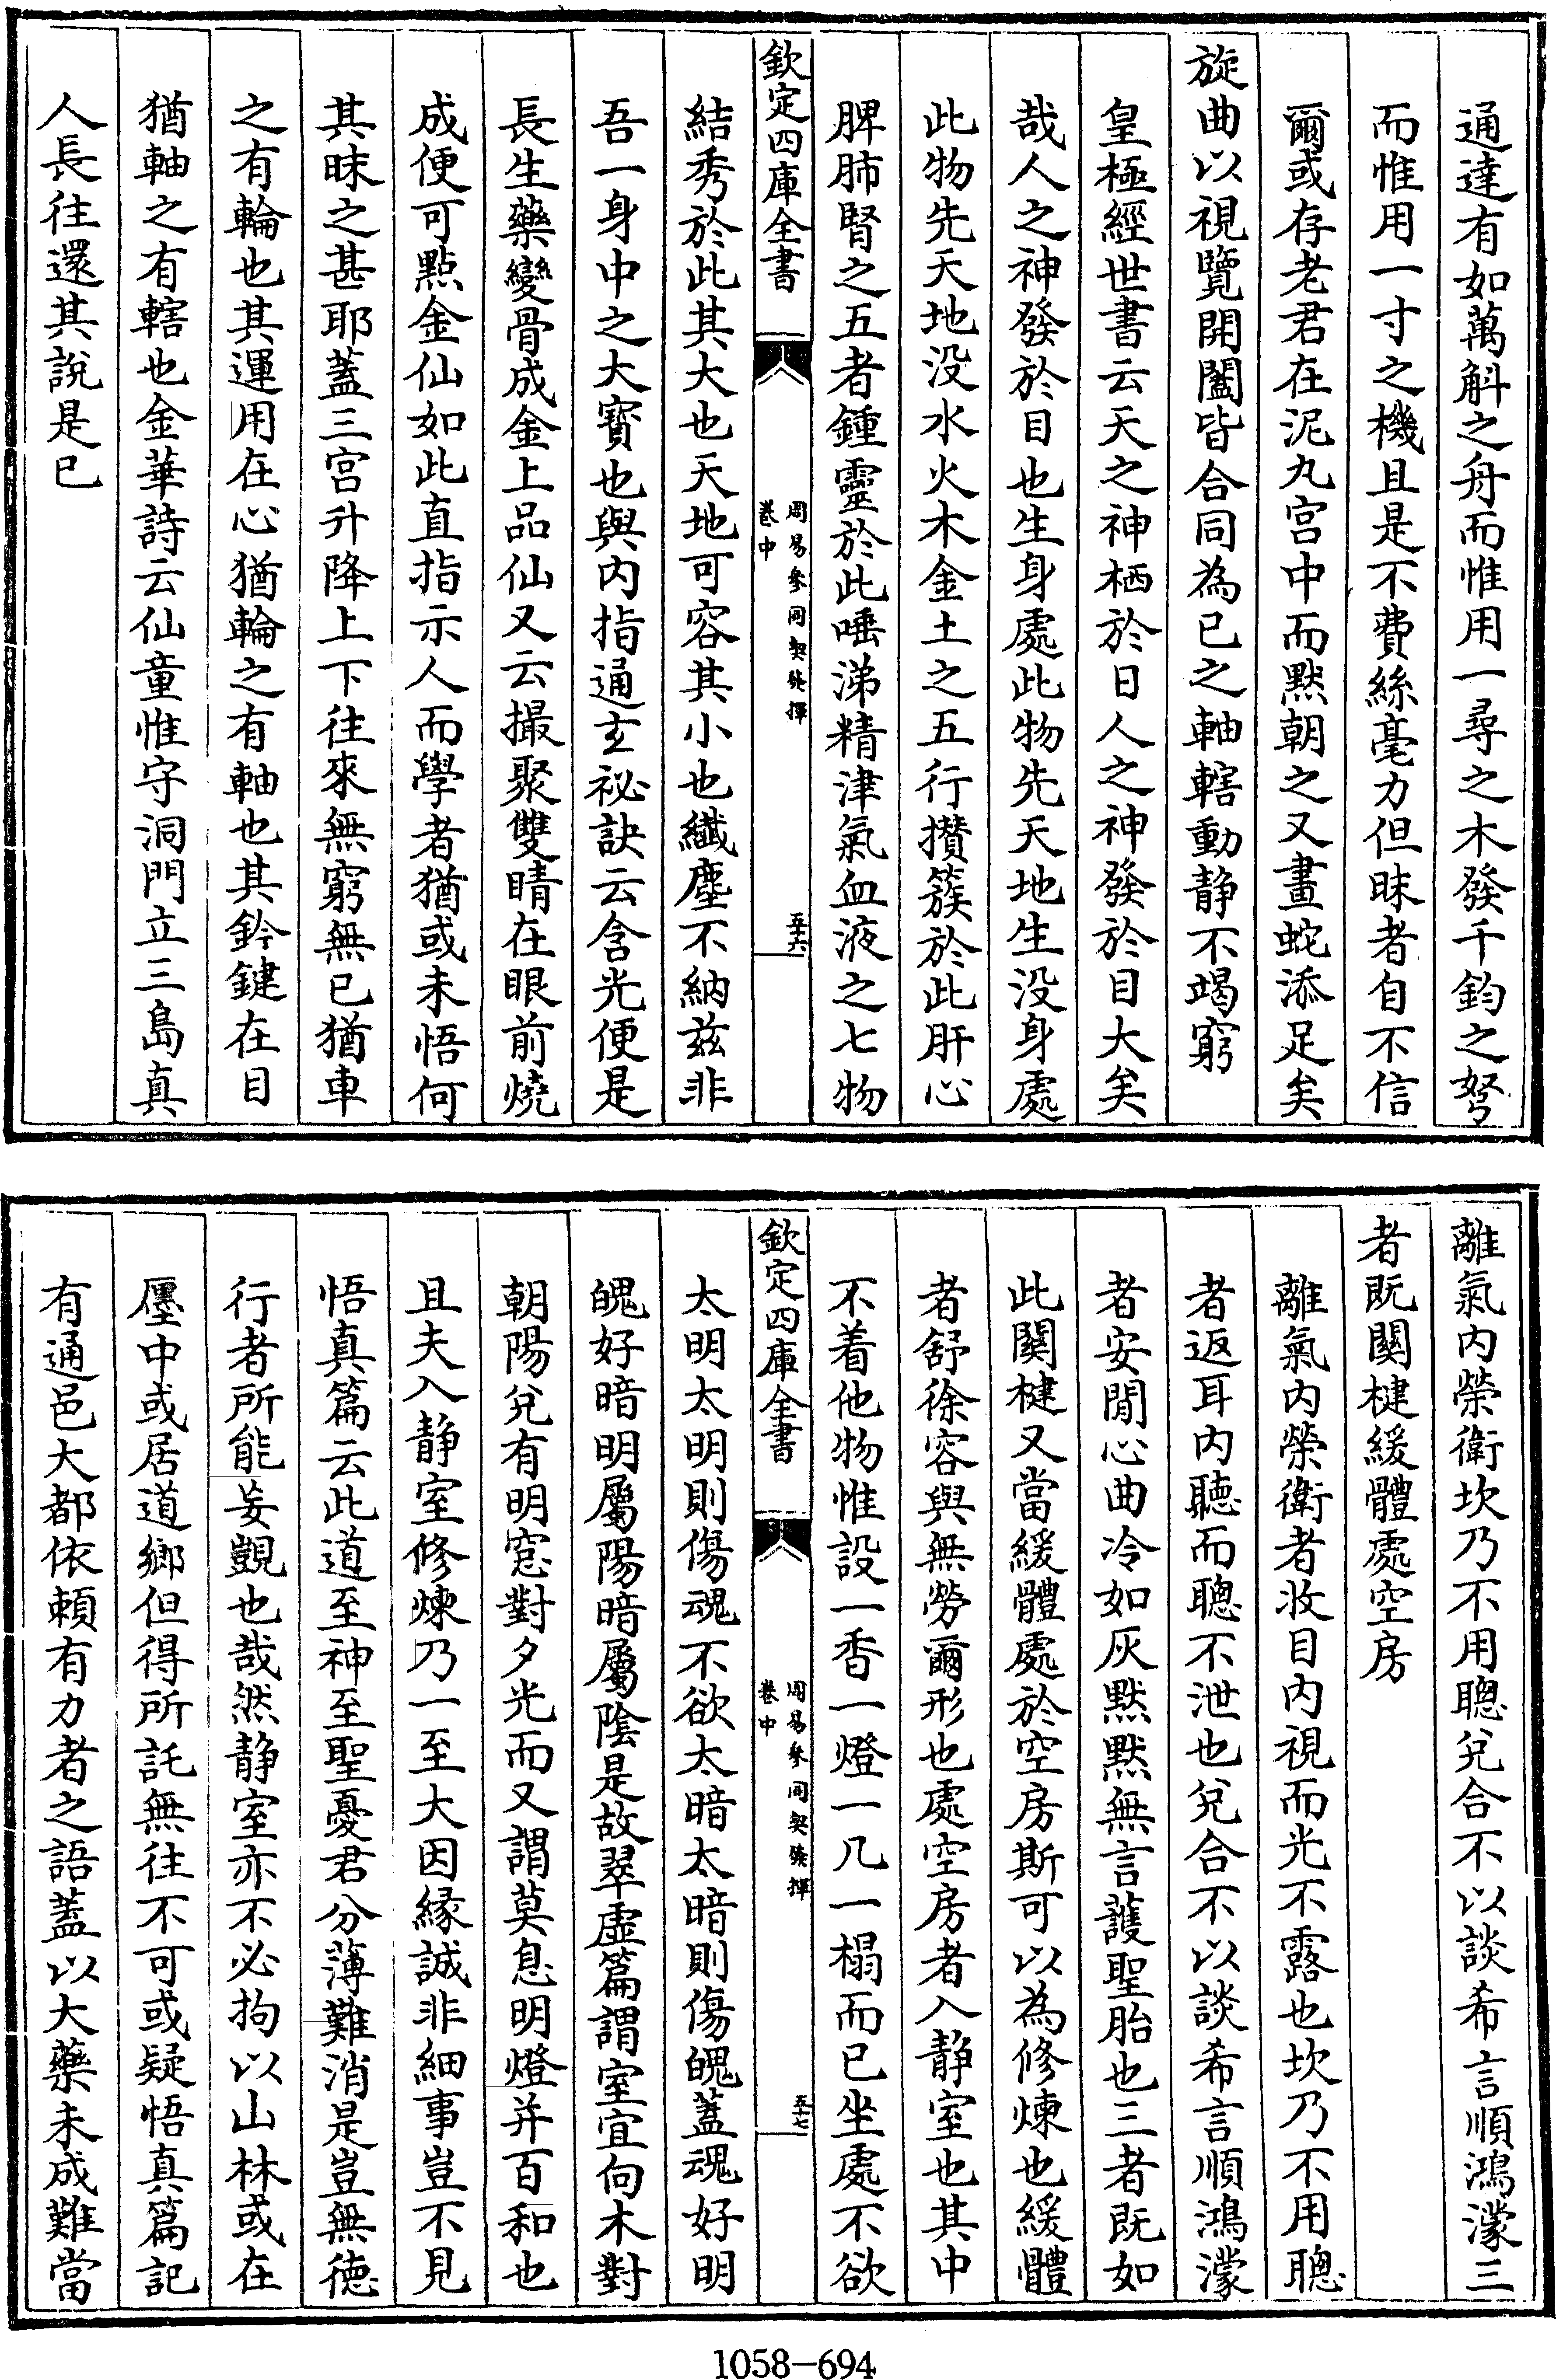 通達有如萬斛之舟而惟用一尋之木發千鈞之弩
而惟用一寸之機且是不費絲毫力但昧者自不信
爾或存老君在泥丸宫中而黙朝之又畫蛇添足矣
旋曲以視覽開闔皆合同為已之軸轄動静不竭窮
皇極經世書云天之神栖於日人之神發於目大矣
哉人之神發於目也生身處此物先天地生没身處
此物先天地没水火木金土之五行攅簇於此肝心
脾肺腎之五者鍾靈於此唾涕精津氣血液之七物
欽定四庫全書
周易參同契發揮
卷中
五十六
結秀於此其大也天地可容其小也纎塵不納兹非
吾一身中之大寳也與内指通𤣥祕訣云含光便是
長生藥變骨成金上品仙又云撮聚雙睛在眼前燒
成便可㸃金仙如此直指示人而學者猶或未悟何
其昧之甚耶蓋三宫升降上下往來無窮無已猶車
之有輪也其運用在心猶輪之有軸也其鈐鍵在目
猶軸之有轄也金華詩云仙童惟守洞門立三島真
人長往還其說是已
離氣内榮衛坎乃不用聰兌合不以談希言順鴻濛三
者既闗楗緩體處空房
離氣内榮衛者收目内視而光不露也坎乃不用聰
者返耳内聽而聰不泄也兌合不以談希言順鴻濛
者安閒心曲冷如灰黙黙無言䕶聖胎也三者既如
此闗楗又當緩體處於空房斯可以為修煉也緩體
者舒徐容與無勞爾形也處空房者入静室也其中
不着他物惟設一香一燈一几一榻而已坐處不欲
欽定四庫全書
周易參同契發揮
卷中
五十七
太明太明則傷魂不欲太暗太暗則傷魄蓋魂好明
魄好暗明屬陽暗屬隂是故翠虚篇謂室宜向木對
朝陽兌有明窓對夕光而又謂莫息明燈并百和也
且夫入静室修煉乃一至大因縁誠非細事豈不見
悟真篇云此道至神至聖憂君分薄難消是豈無徳
行者所能妄覬也哉然静室亦不必拘以山林或在
㕓中或居道鄉但得所託無往不可或疑悟真篇記
有通邑大都依頼有力者之語蓋以大藥未成難當
1058-694